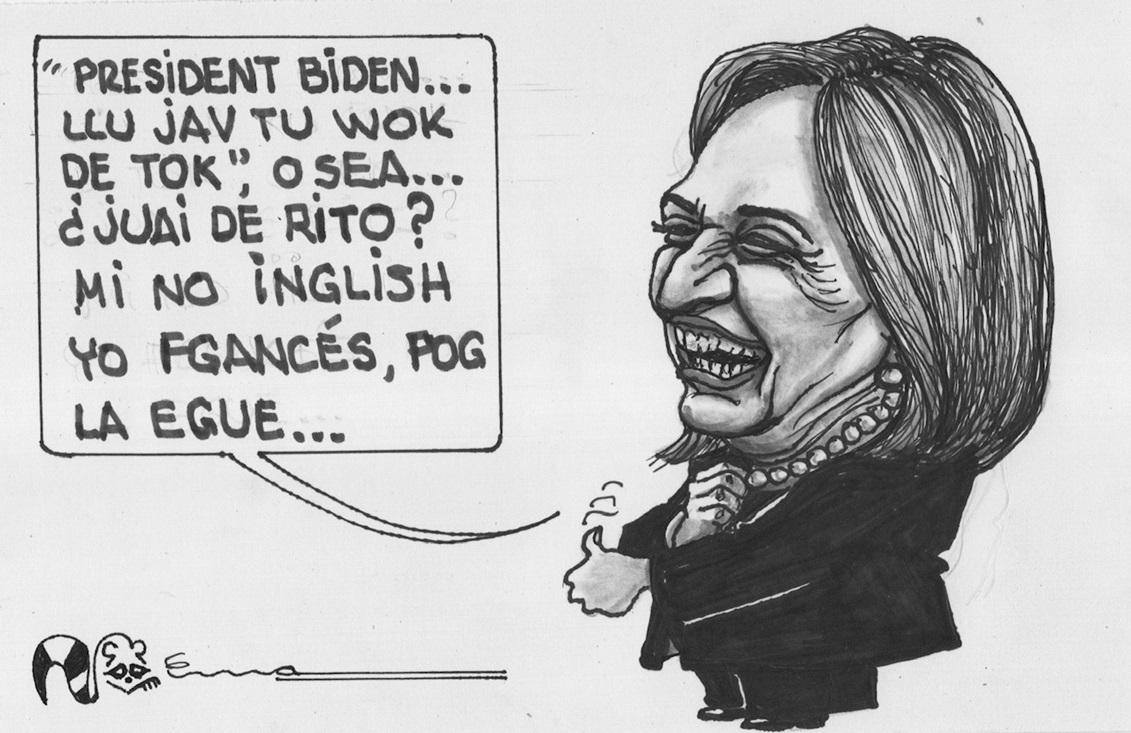 "PRESiDENT BiDEN...
LLU JAV TU WOK
DE TOK", O SEA...
¿JUAi DE RiTO?
Mi NO iNGLiSH
YO FGANCÉS, POG
LA EGUE...